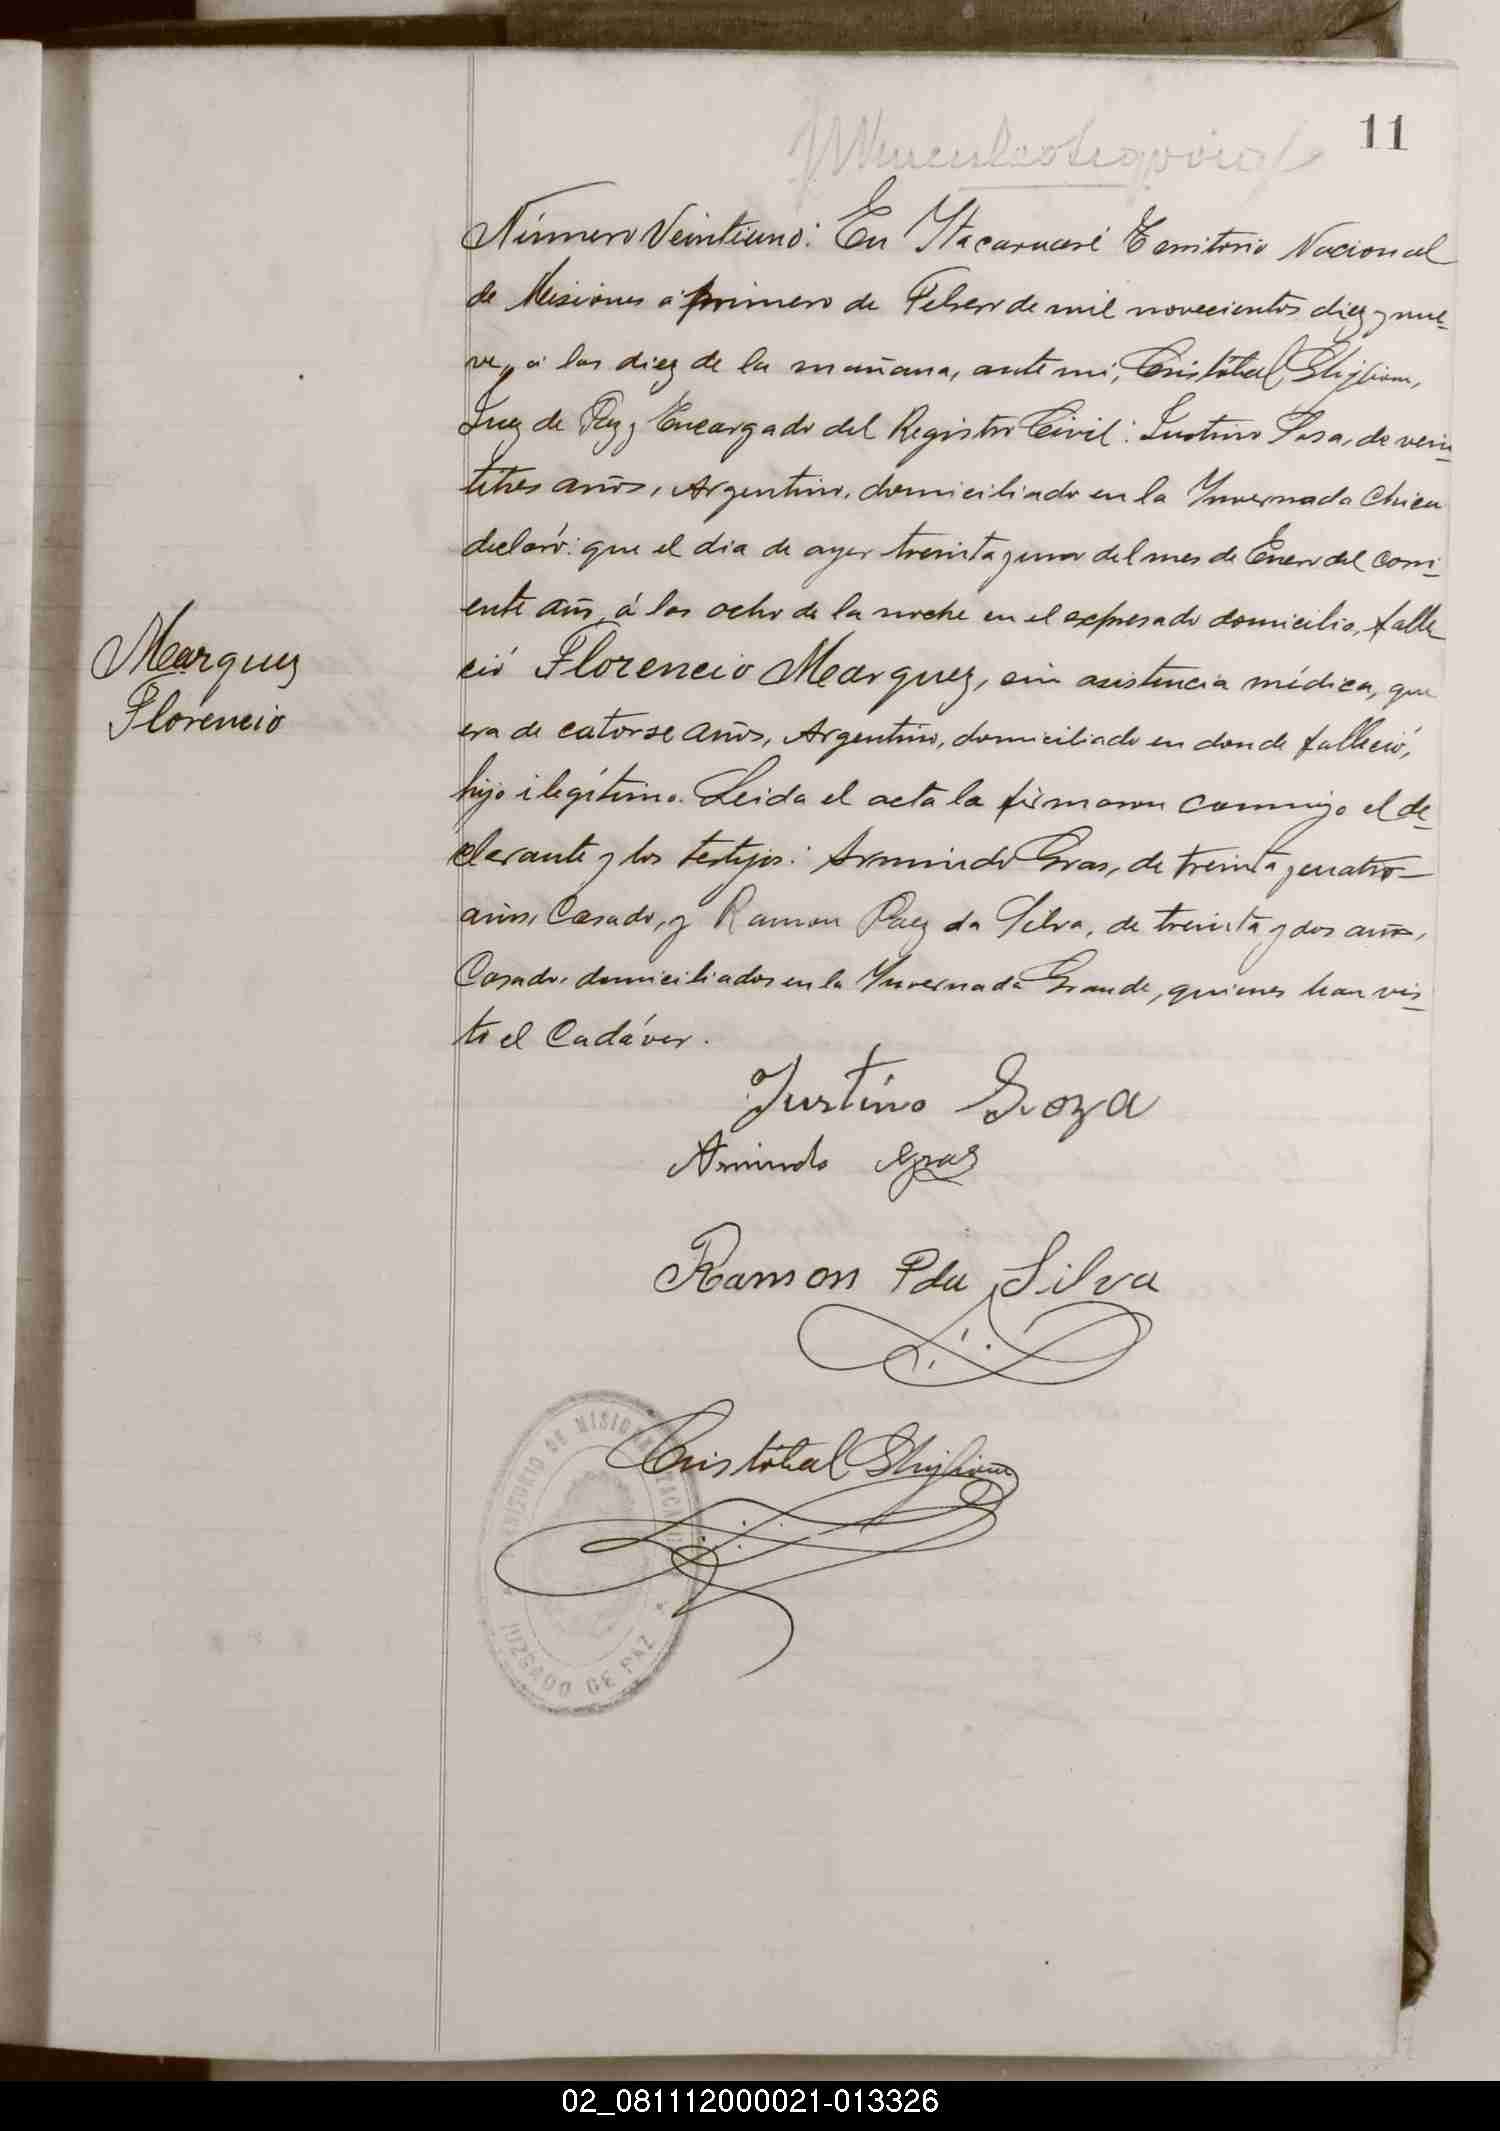 11
Número Veintiuno: En Itacaruaré Territorio Nacional
de Misiones á primero de Febrero de mil novecientos diez y nue-
ve, á las diez de la mañana, ante mi, Cristóbal Ghiglione,
Juez de Paz y Encargado del Registro Civil: Justino Sosa, de vein-
titres años, Argentino, domiciliado en la Invernada Chica
declaró: que el dia de ayer treinta y uno del mes de Enero del corri-
ente año, á las ocho de la noche en el expresado domicilio, falle-
ció Florencio Marquez, sin asistencia médica, que
era de catorse años, Argentino, domiciliado en donde falleció,
hijo ilegítimo. Leida el acta la firmaron conmigo el de-
clarante y los testigos: Armindo Gras, de treinta y cuatro
años, Casado, y Ramon Paez da Silva, de treinta y dos años,
Casado, domiciliados en la Invernada Grande, quienes han vis-
to el Cadáver.
Marquez
Florencio
Justino Soza
Armindo Gras
Ramon P da Silva
Cristóbal Ghiglione
TERRITORIO DE MISIONES
JUZGADO DE PAZ
02_081112000021-013326